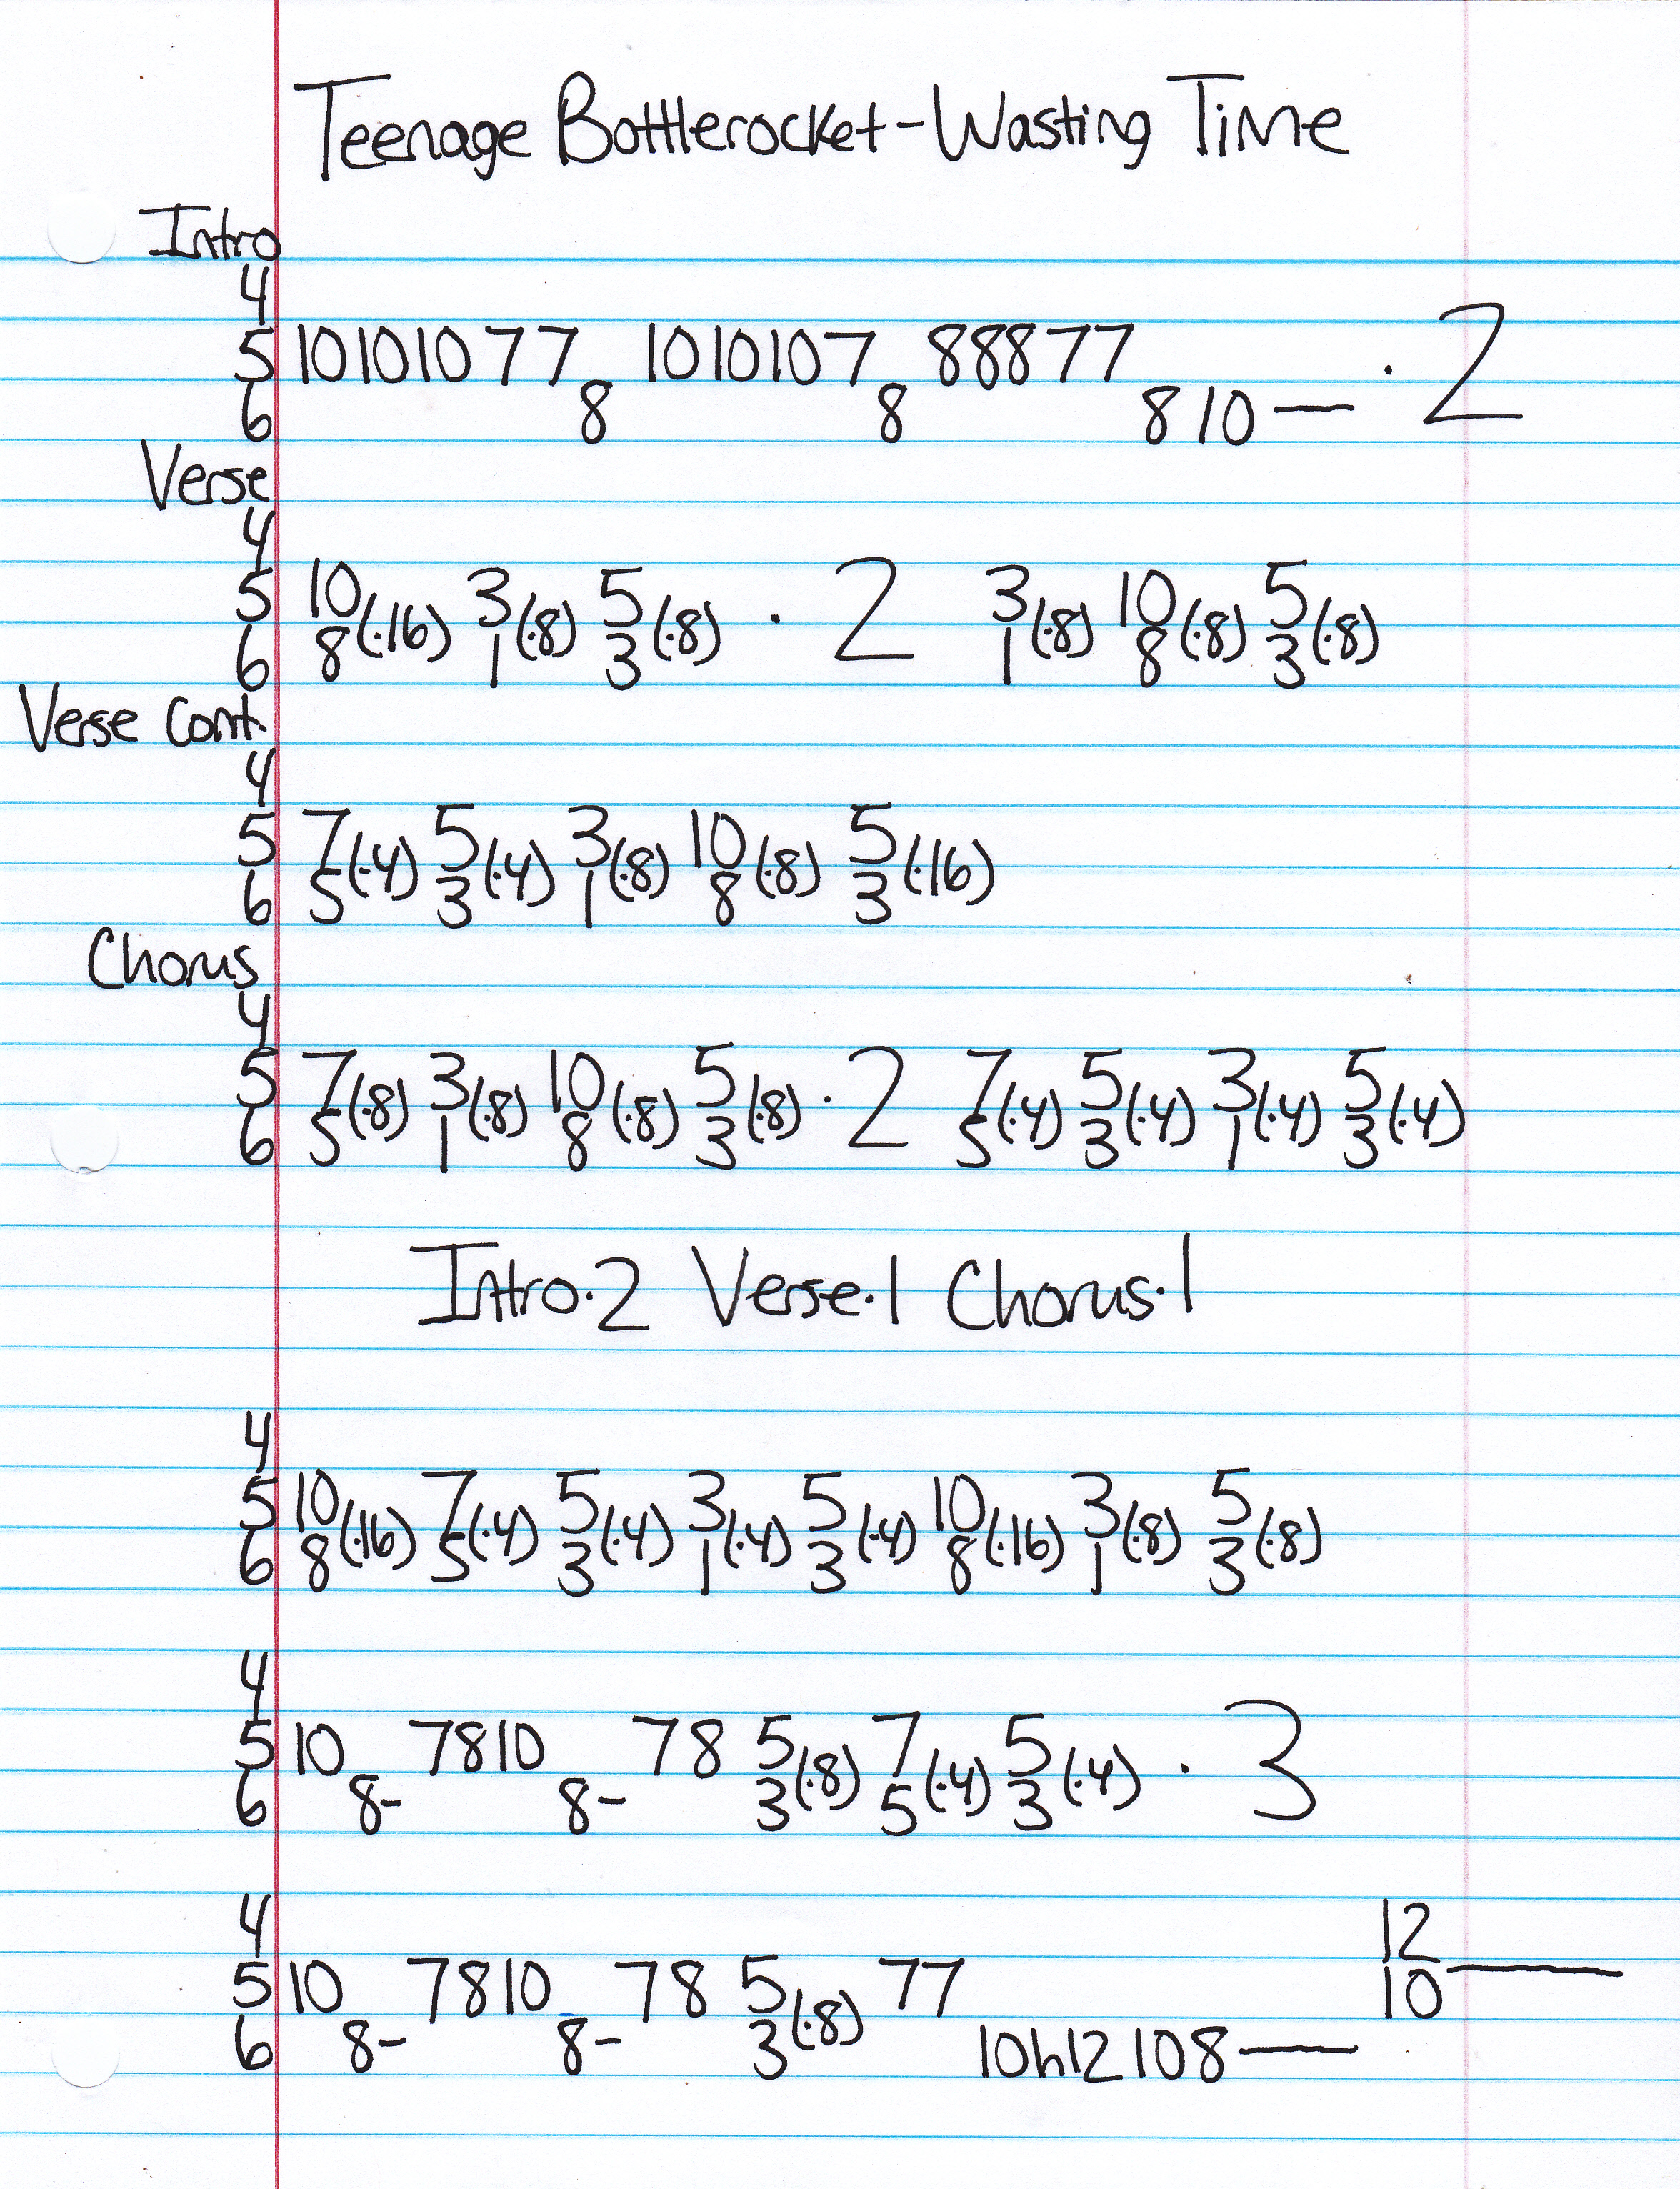 Teenage Bottlerocket-Wasting Time
Intro
4
5 10 10 10 7 7 10 10 10 7 8 8 8 7 7 · 2
6 8 8 8 10 —
Verse
4
5 10 3 5 3 10 5
(·16) (·8) (·8) · 2 (·8) (·8) (·8)
6 8 1 3 1 8 3
Verse Cont.
4
5 7 5 3 10 5
(·4) (·4) (·8) (·8) (·16)
6 5 3 1 8 3
Chorus
4
5 7 3 10 5 7 5 3 5
(·8) (·8) (·8) (·8) · 2 (·4) (·4) (·4) (·4)
6 5 1 8 3 5 3 1 3
Intro·2 Verse·1 Chorus·1
4
5 10 7 5 3 5 10 3 5
(·16) (·4) (·4) (·4) (·4) (·16) (·8) (·8)
6 8 5 3 1 3 8 1 3
4
5 10 7 8 10 7 8 5 7 5
(·8) (·4) (·4) · 3
6 8- 8- 3 5 3
4 12
5 10 7 8 10 7 8 5 7 7 10 —
(·8)
6 8- 8- 3 10h12 10 8 —